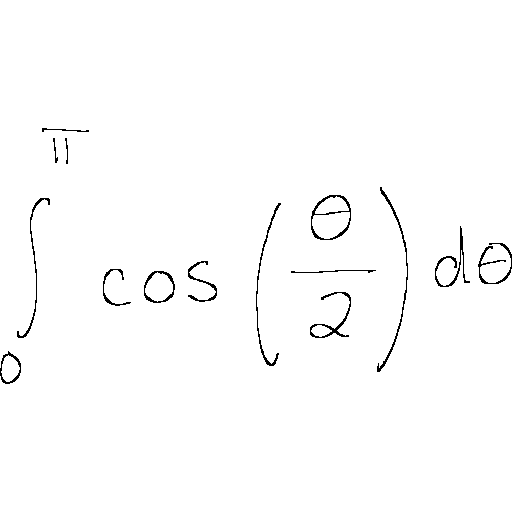 ∫₀^π cos(θ/2) dθ